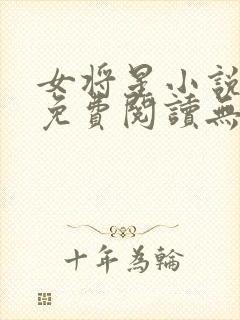 女將星小說
免費閱讀無
十年為輪